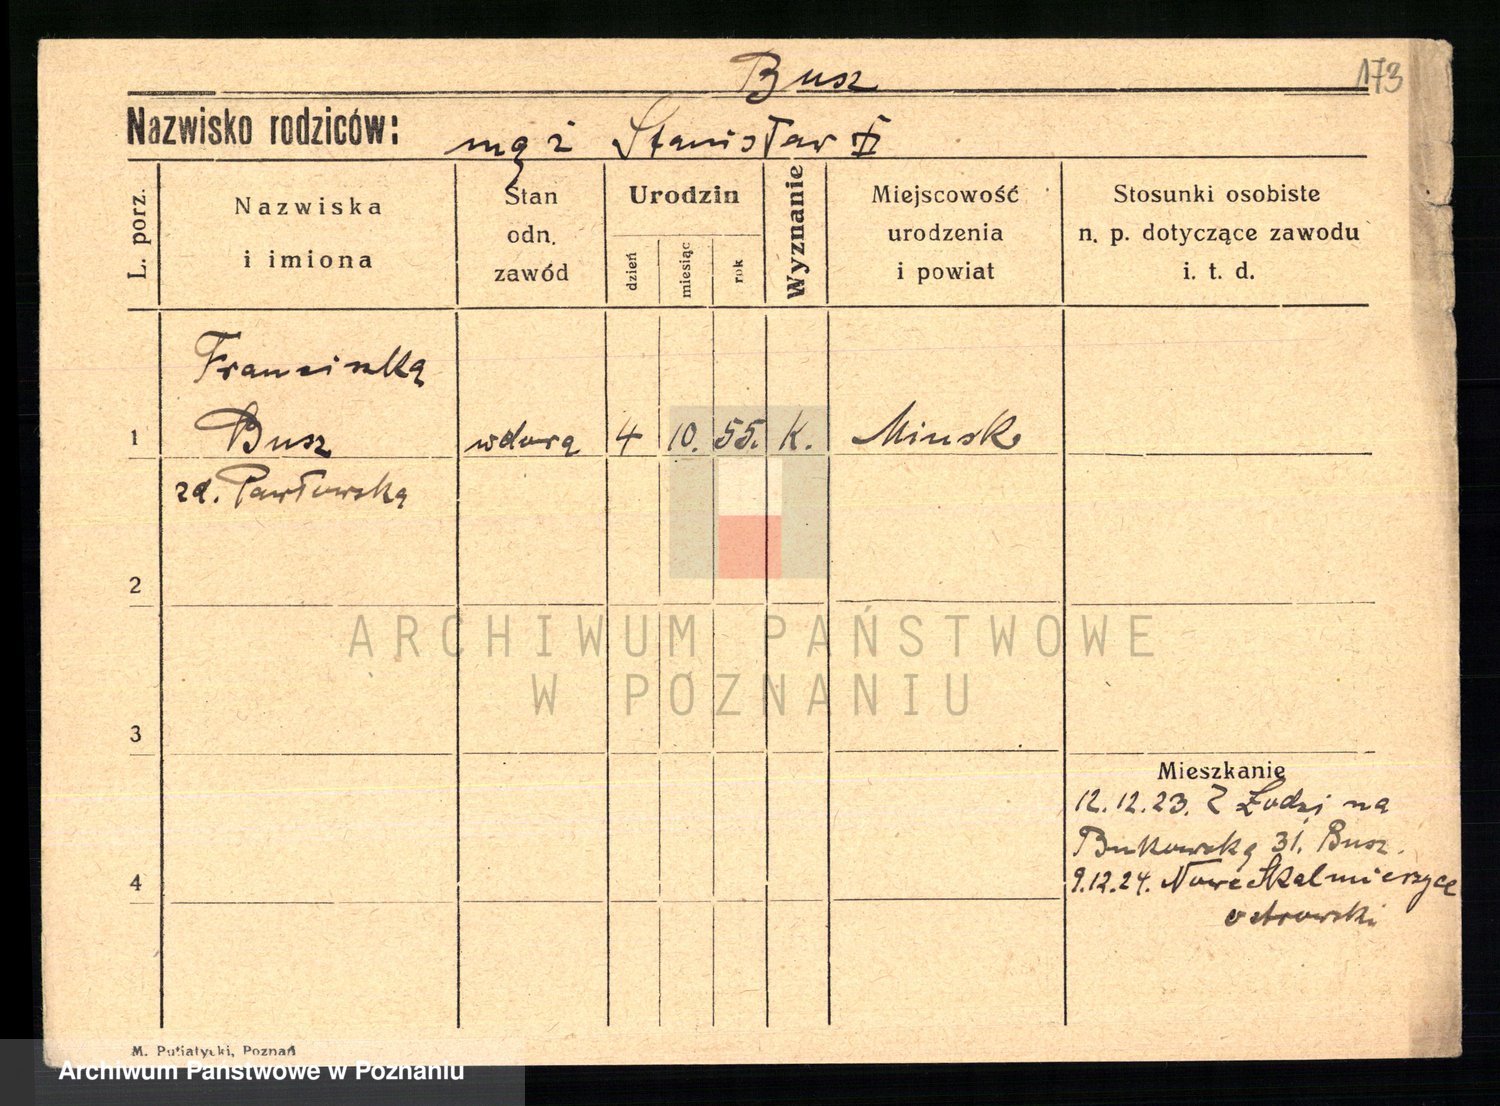 Busz
173
Nazwisko rodziców:
mąż Stanisław
L. porz.
Nazwiska
i imiona
Stan
odn.
zawód
Urodzin
dzień
miesiąc
rok
Wyznanie
Miejscowość
urodzenia
i powiat
Stosunki osobiste
n. p. dotyczące zawodu
i. t. d.
Franciszka
1 Busz wdowa 4 10. 55. K. Minsk
zd. Pawłowska
2
ARCHIWUM PAŃSTWOWE
W POZNANIU
3
Mieszkanie
12.12.23. Z Łodzi na
Bukowską 31. Busz.
4
9.12.24. Nowe Skalmierzyce
ostrowski
M. Putiatycki, Poznań
Archiwum Państwowe w Poznaniu